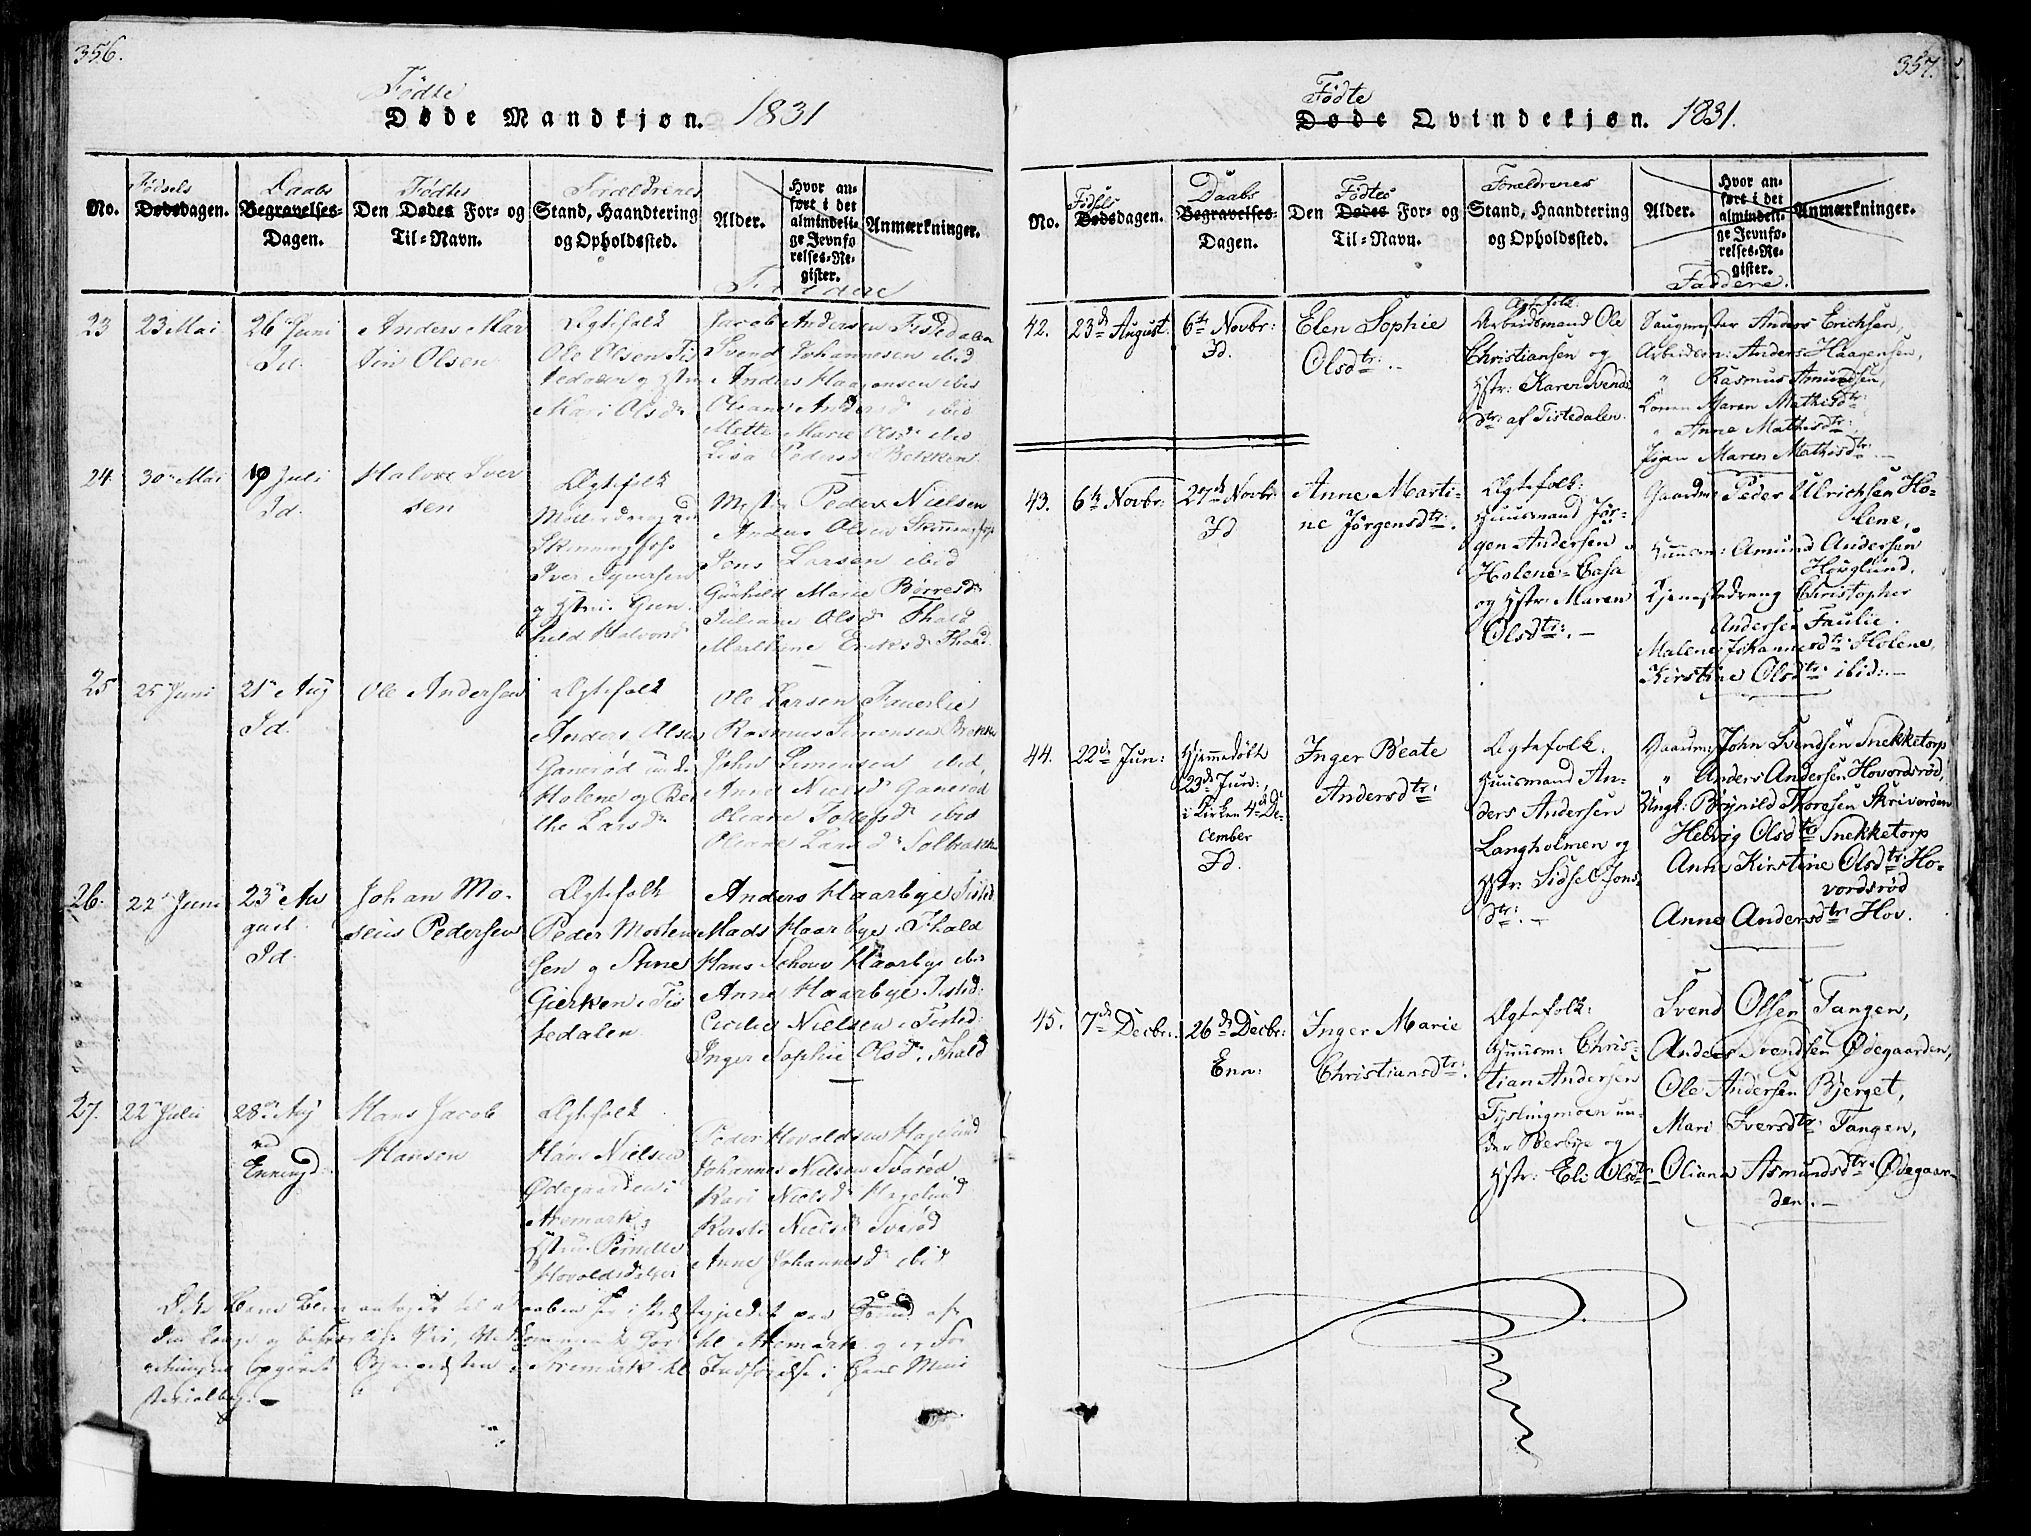 356.
Fødte
Døde Mandkjøn. 1831
No.
Fødsels
Dødsdagen.
Daabs
Begravelses-
Dagen.
Fødtes
Den Dødes For- og
Til-Navn.
Forældrenes
Stand, Haandtering
og Opholdssted.
Alder.
Hvor an-
ført i det
almindeli-
ge Jevnfø-
relses-Re-
gister.
Anmærkninger.
Faddere
23
23 Mai
26 Juni
Id.
Anders Mar
tin Olsen
Ægtefolk
Ole Olsen Tis
tedalen og Hstru
Mari Olsdr
Jacob Andersen Tistedalen
Svend Johannesen ibid
Anders Haagensen ibid
Oleane Andersd ibid
Mette Marie Olsd ibid
Lisa Pedersd Bekken
24.
30 Mai
10 Juli
Id.
Halvor Iver
sen
Ægtefolk
Skonningsfoss
Iver Iversen
og Hstru Gun
hild Halvorsd
Mester Peder Nielsen
Anders Olsen Skonningsfoss
Jens Larsen ibid
Gunhild Marie Børresdr
Juliane Olsd Thald
Mathine Eriksd Thald
25
25 Juni
21 Aug
Id.
Ole Andersen
Ægtefolk
Anders Olsen
Ganerød unde
Holene og Ber
the Larsdr
Ole Larsen Fauerlie
Rasmus Simensen Bekken
John Simensen ibid,
Anne Nielsd Ganerød
Oleane Tolefsd ibid
Oleane Larsd Solbakk
26.
22 Juni
23 Au
gust.
Id.
Johan Mo-
seus Pedersen
Ægtefolk
Peder Morten
sen og Anne
Gierken i Tis
tedalen
Anders Haarbye Tisted
Mads Haarbye i Thald
Hans Schou Haarbye ibid
Anne Haarbye Tisted:
Cicilie Nielsen i Tisted:
Inger Sophie Olsd i Thald
27.
22 Julii
28 Aug
ved
Enningd:
Hans Jacob
Hansen
Ægtefolk
Hans Nielsen
Ødegaarden i
Aremark og
Hstru Pernille
Hovoldsdatter
Peder Hovoldsen Hagelund
Johannes Nielsen Svarød
Kari Nielsd Hagelund
Kersti Nielsd Svarød
Anne Johannesd ibid
357.
Fødte
Døde Qvindekjøn. 1831.
No.
Fødsels
Dødsdagen.
Daabs
Begravelses-
Dagen.
Fødtes
Den Dødes For- og
Til-Navn.
Forældrenes
Stand, Haandtering
og Opholdssted.
Alder.
Hvor an-
ført i det
almindeli-
ge Jevnfø-
relses-Re-
gister.
Anmærkninger.
Faddere.
42.
23d August.
6te Novbr:
Id.
Elen Sophie
Olsdtr: -
Ægtefolk:
Arbeidsmand Ole
Christiansen og
Hstr: Karen Svends
dtr: af Tistedalen.
Saugmester Anders Erichsen,
Arbeidsm: Anders Haagensen,
" Rasmus Amundsen,
Konen Maren Mathisdtr
" Anne Mathisdtr,
Pigen Maren Mathisdtr: -
43.
6te Novbr:
27d Novbr:
Id
Anne Marti-
ne Jörgensdtr:.
Ægtefolk:
Huusmand Jør-
gen Andersen
Holene-Casa
og Hstr: Maren
Olsdtr: -
Gaardm: Peder Ulrichsen Ho-
lene,
Huusm: Amund Andersen
Høuglund,
Tjenestedreng Christopher
Andersen Faulie.
Malene Johannesdtr Holene,
Kirstine Olsdtr: ibid: -
44.
22d Jun:
Hjemmedøbt
23d Juni:
i Kirken 4d De-
cember
Id.
Inger Beate
Andersdtr:
Ægtefolk:
Huusmand An-
ders Andersen
Langholmen og
Hstr: Sidsel Jons-
dtr: -
Gaardm: John Svendsen Snekketorp
" Anders Andersen Hovordsrød,
Ungk: Brynild Thoresen Skriverøen
Helvig Olsdtr Snekketorp
Anne Kirstine Olsdtr: Ho-
vordsrød
Anne Andersdtr: Hov.
45.
7d Decbr:
26d Decbr:
Enn:
Inger Marie
Christiansdtr:
Ægtefolk:
Huusm: Chris-
tian Andersen
Tyslingmoen un-
der Berbye og
Hstr: Eli Olsdtr
Svend Olsen Tangen,
Anders Svendsen Ødegaarden,
Ole Andersen Bjerget,
Mari Iversdtr: Tangen,
Oliana Asmundsdtr: Ødegaar-
den. -